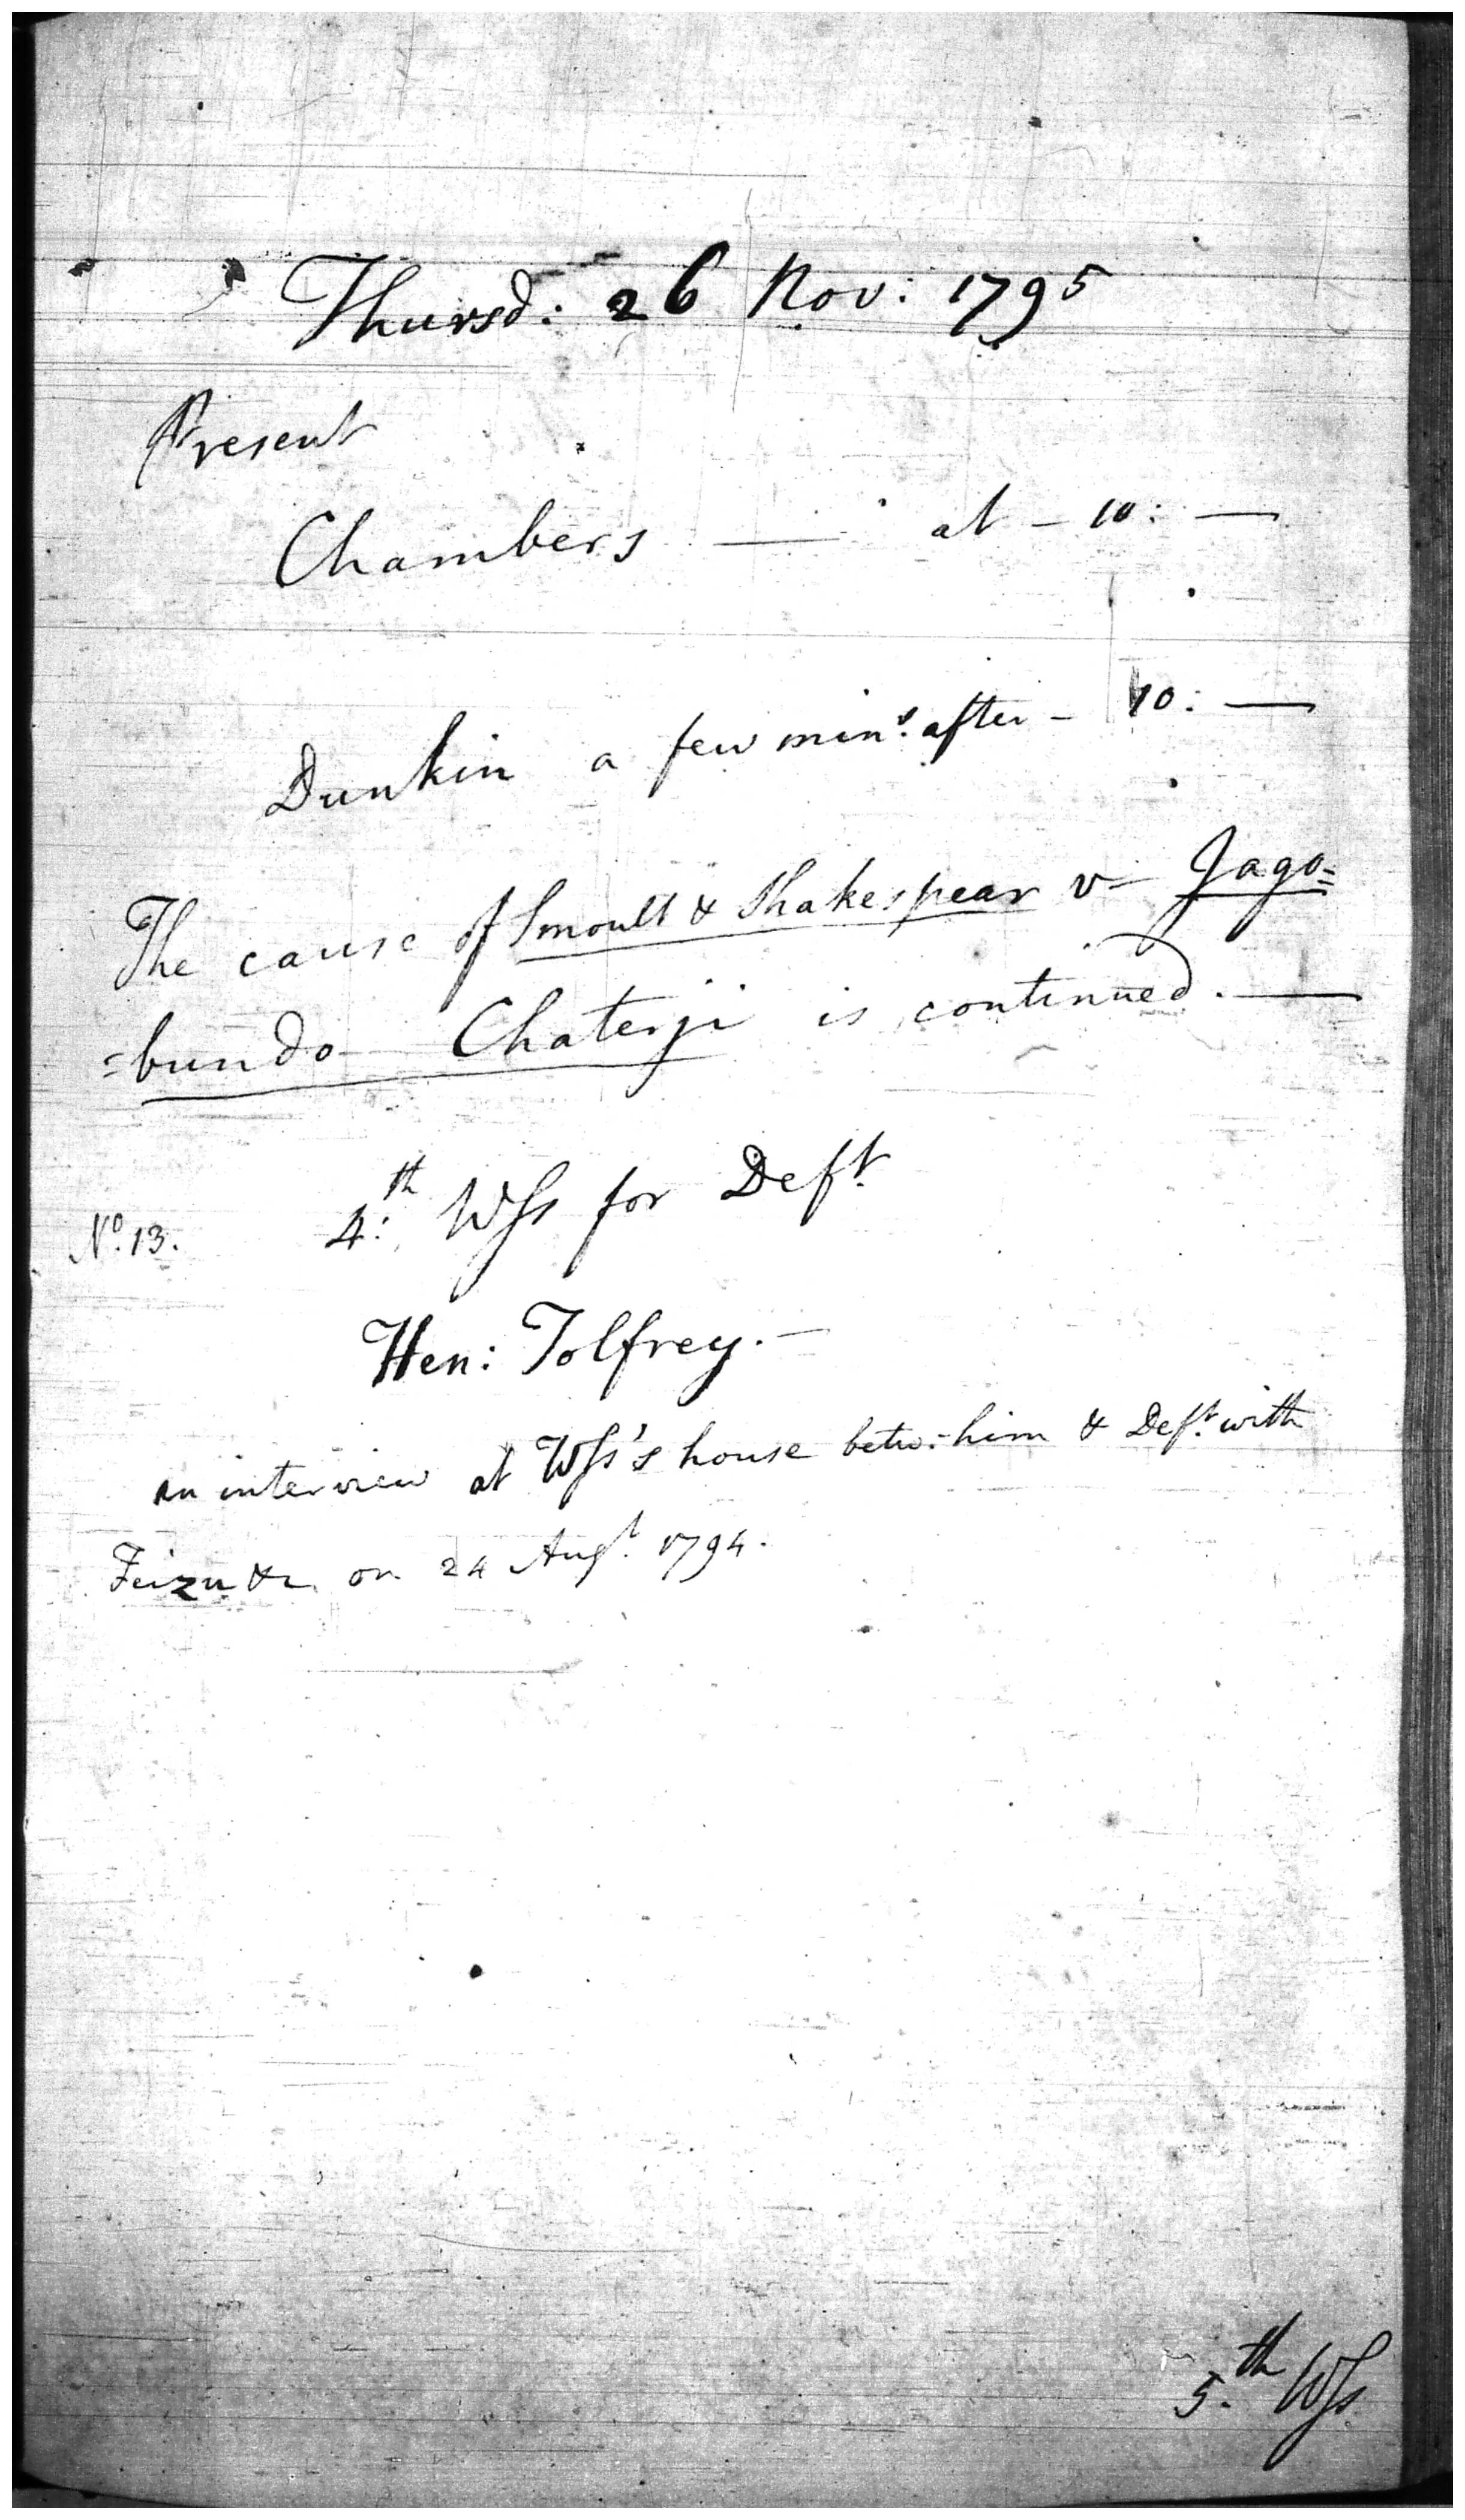 Thursd: 26 Nov: 1795
Present
Chambers — at — 10: —
Dunkin a few min.s after — 10: —
The cause of Smoult & Shakespear v— Jago=
=bundo Chaterji is continued. —
No. 13. 4:th Wss for Deft
Hen: Tolfrey. —
an interview at Wss's house betw: him & Deft. with
Feizu &c on 24 Augt. 1794.
5.th Wss